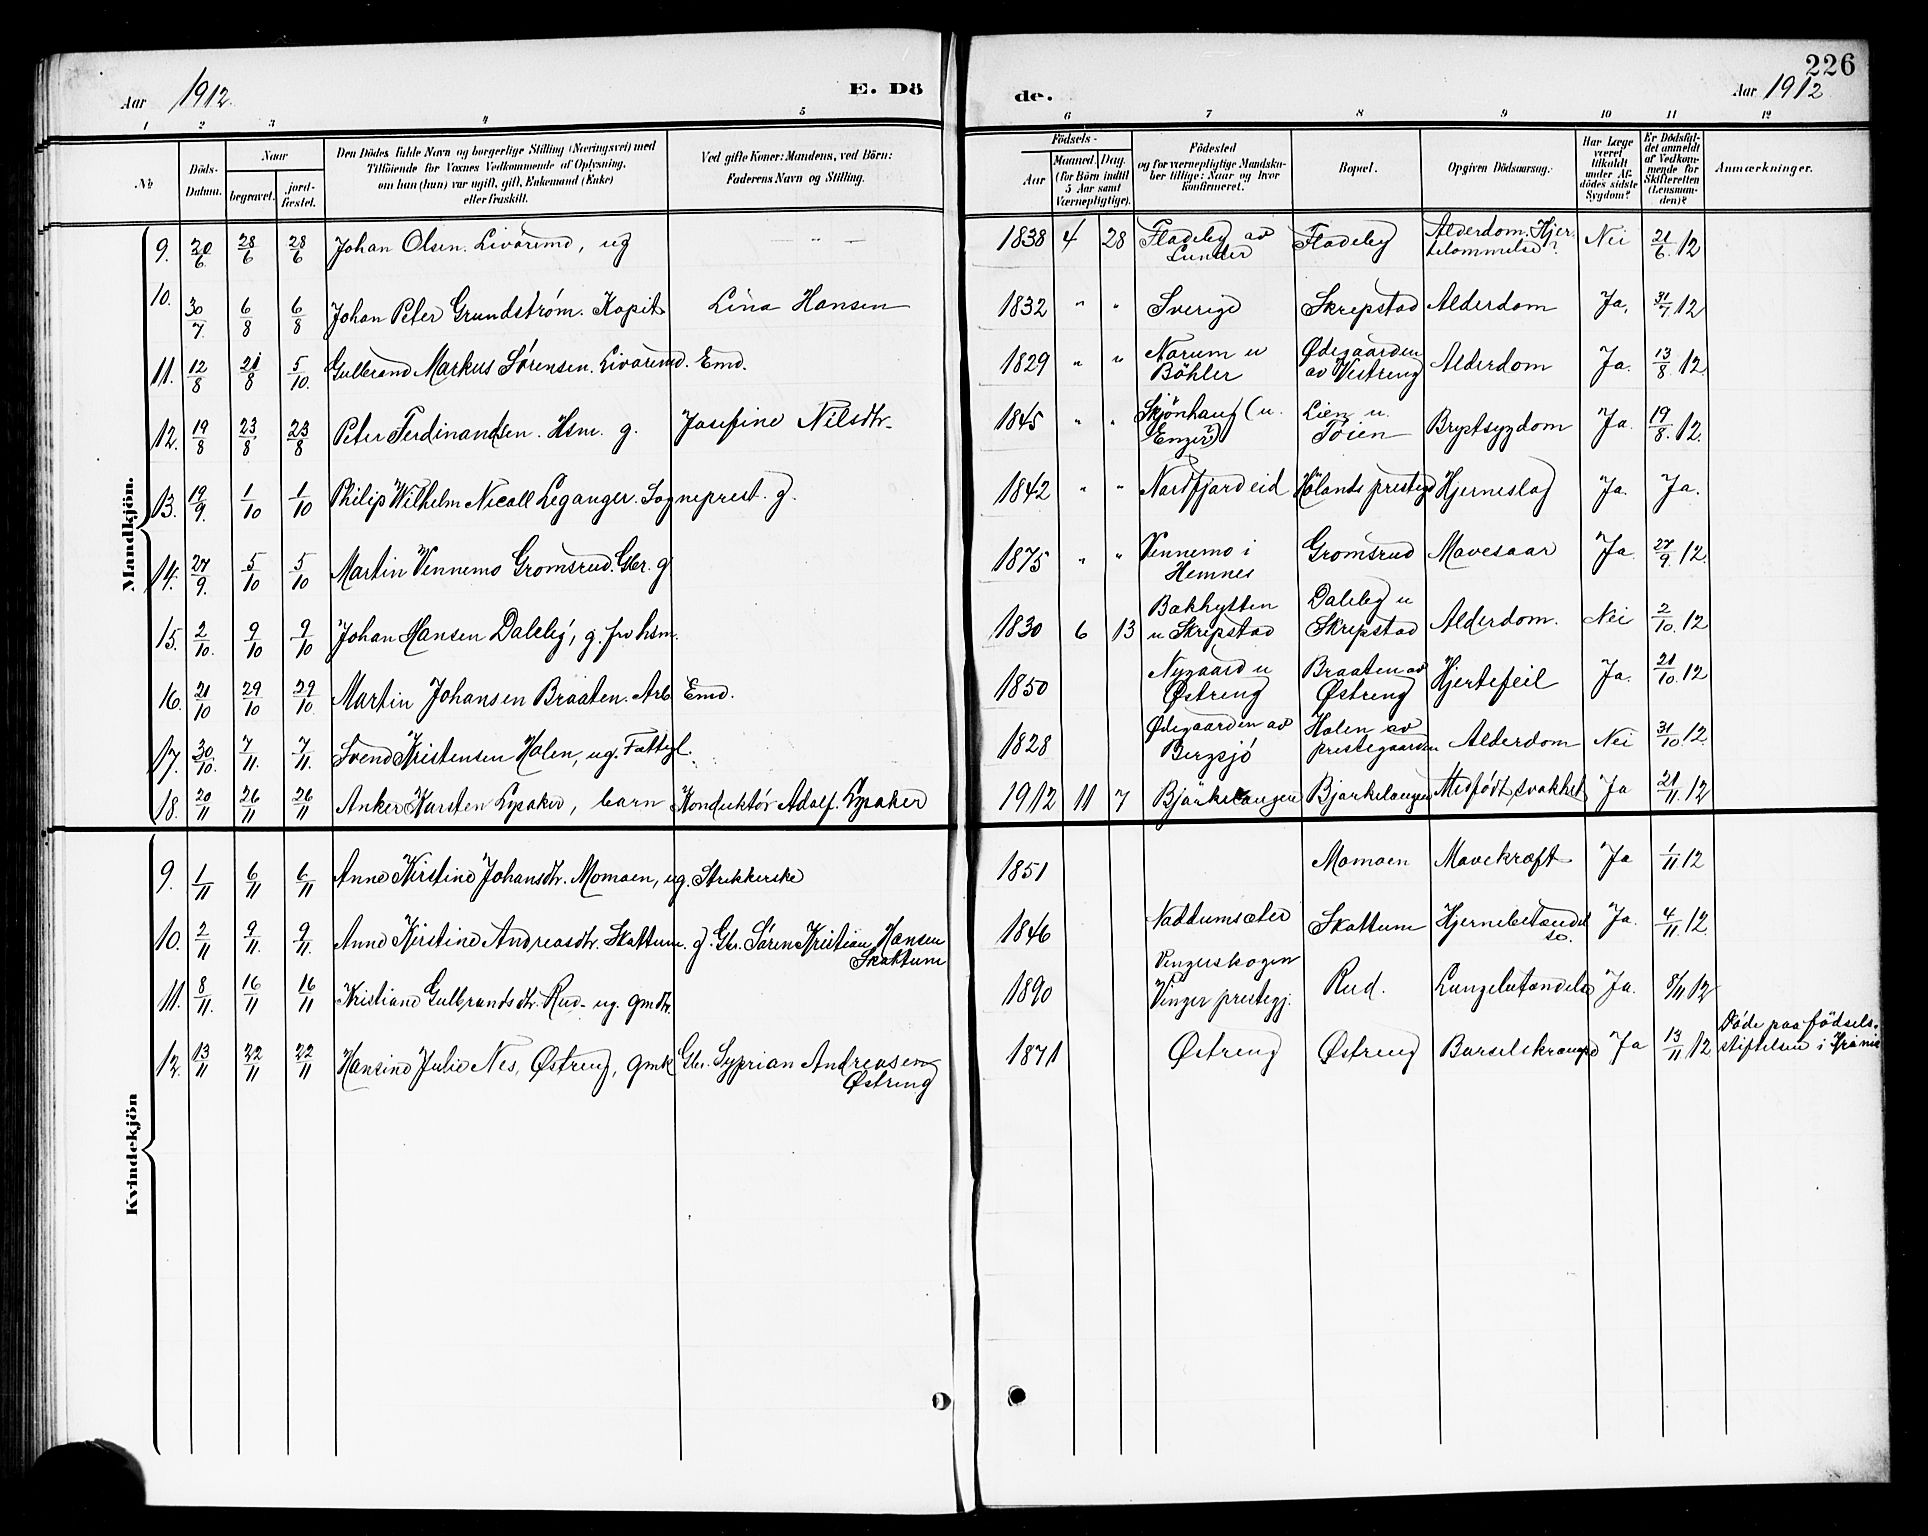 226
Aar 1912. E. Dö de. Aar 1912
1 2 3 4 5 6 7 8 9 10 11 12
№
Döds-Datum.
Naar
begravet.
jord-fæstet.
Den Dödes fulde Navn og borgerlige Stilling (Næringsvei) med
Tilföiende for Voxnes Vedkommende af Oplysning,
om han (hun) var ugift, gift, Enkemand (Enke)
eller fraskilt.
Ved gifte Koner: Mandens, ved Börn:
Faderens Navn og Stilling.
Födsels-
Aar
Maaned. Dag.
(for Börn indtil
5 Aar samt
Værnepligtige).
Födested
og for værnepligtige Mandsku-
ber tillige: Naar og hvor
konfirmeret.
Bopæl.
Opgiven Dödsaarsag.
Har Læge
været
tilkaldt
under Af-
dödes sidste
Sygdom?
Er Dödsfal-
det anmeldt
af Vedkom-
mende for
Skifteretten
(Lensman-
den)?
Anmærkninger.
Mandkjön.
9. 20/6 28/6 28/6 Johan Olsen. Livøremd, ug — " — 1838 4 28 Fladeby av Lunder Fladeby Alderdom. Hjertelammelse? Nei 21/6 12
10. 30/7 6/8 6/8 Johan Peter Grundström. Kapit Lina Hansen 1832 " " Sverige Skrepstad Alderdom Ja, 31/7 12
11. 12/8 21/8 5/10. Gulbrand Markus Sørensen. Livøremd. Emd. 1829 " " Narum u Bøhler Ødegaarden av Vestreng Alderdom Ja. 13/8 12.
12. 19/8 23/8 23/8 Peter Ferdinandsen. Hsm. g. Josefine Nilsdtr. 1845 " " Skjönhaug (u. Enger?) Lien u. Toien Brystsygdom Ja. 19/8. 12.
13. 19/9. 1/10 1/10 Philip Wilhelm Nicoll Leganger. Sogneprest. g. 1842 " " Nordfjordeid Hölands presteg Hjerneslag Ja. Ja.
14. 27/9. 5/10 5/10 Martin Vennemo Gromsrud. Gbr. g 1875 " " Vennemo i Hemnes Gromsrud Mavesaar Ja 27/9. 12.
15. 2/10. 9/10 9/10 Johan Hansen Daleby, g. frv hsm. 1830 6 13 Bakhytten u Skrepstad Daleby u Skrepstad Alderdom. Nei 2/10. 12
16. 21/10 29/10 29/10. Martin Johansen Braaten. Arb Emd. 1850 Nygaard u Østreng Braaten av Østreng Hjertefeil Ja. 21/10. 12
17. 30/10. 7/11. 7/11. Svend Kristensen Holen, ug. Fattigl. 1828 Ødegaarden av Bergsjö Holen av prestegaarden Alderdom Nei 31/10. 12.
18. 20/11 26/11 26/11 Anker Karsten Lysaker, barn Konduktör Adolf. Lysaker 1912 11 7 Björkelangen Bjørkelangen Medfødt svakhet Ja 21/11. 12
Kvindekjön
9. 1/11 6/11 6/11 Anne Kirstine Johansdtr. Momoen, ug. Strikkerske 1851 Momoen Mavekræft Ja 1/11 12
10. 2/11 9/11. 9/11. Anne Kirstine Andreasdtr. Skattum. g. Gbr. Søren Kristian Hansen Skattum 1846 Naddumsæter Skattum Hjernebetændelse. Ja. 4/11 12.
11. 8/11. 16/11 16/11 Kristiane Gulbrandsdtr. Rud. ug. gmdtr. 1890 Vingerskogen Vinger prestegj. Rud. Lungebetændelse Ja. 8/11 12
12. 13/11 22/11 22/11 Hansine Julie Nes, Østreng, gmk Gbr. Syprian Andreasen Østreng 1871 Østreng Østreng Barselskrampe Ja 13/11 12 Döde paa födsels-stiftelsen i Krania